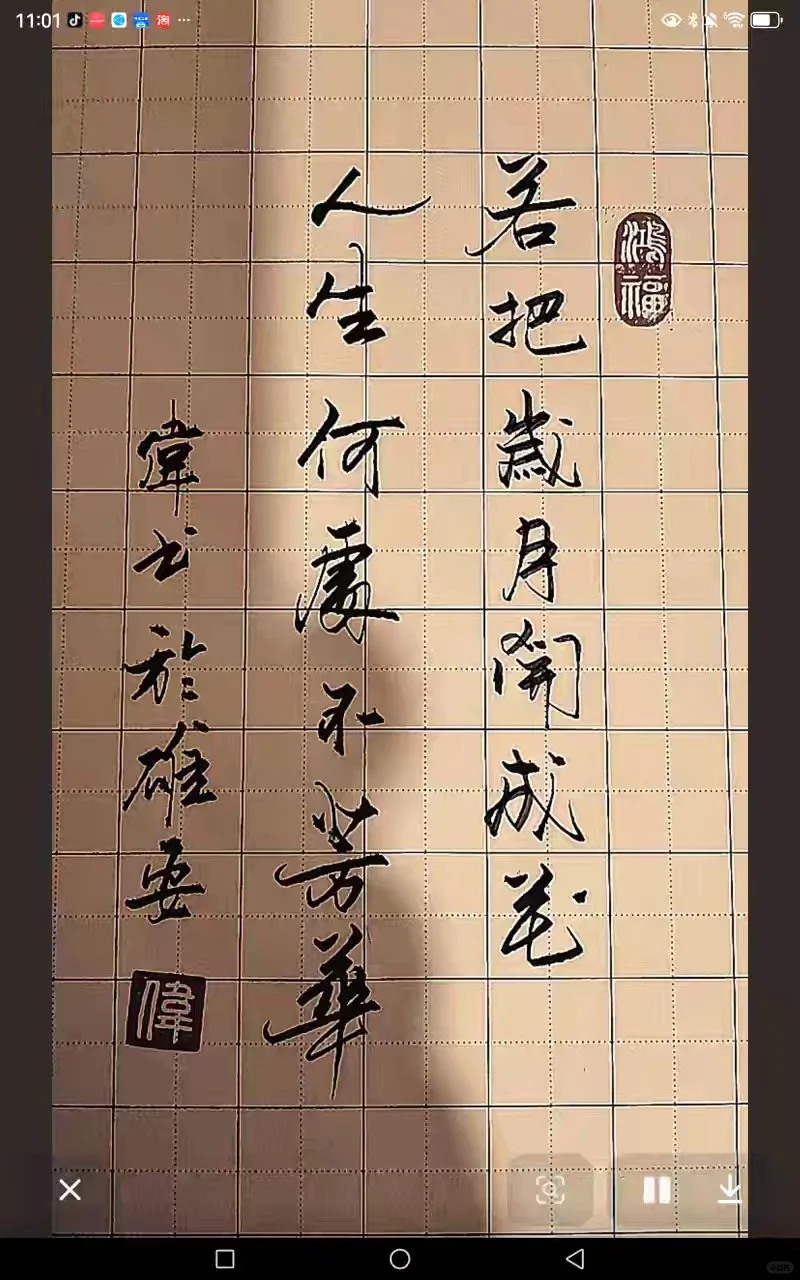 11:01
鴻福
若把歲月開成花
人生何處不芳華
偉書於雄安
偉